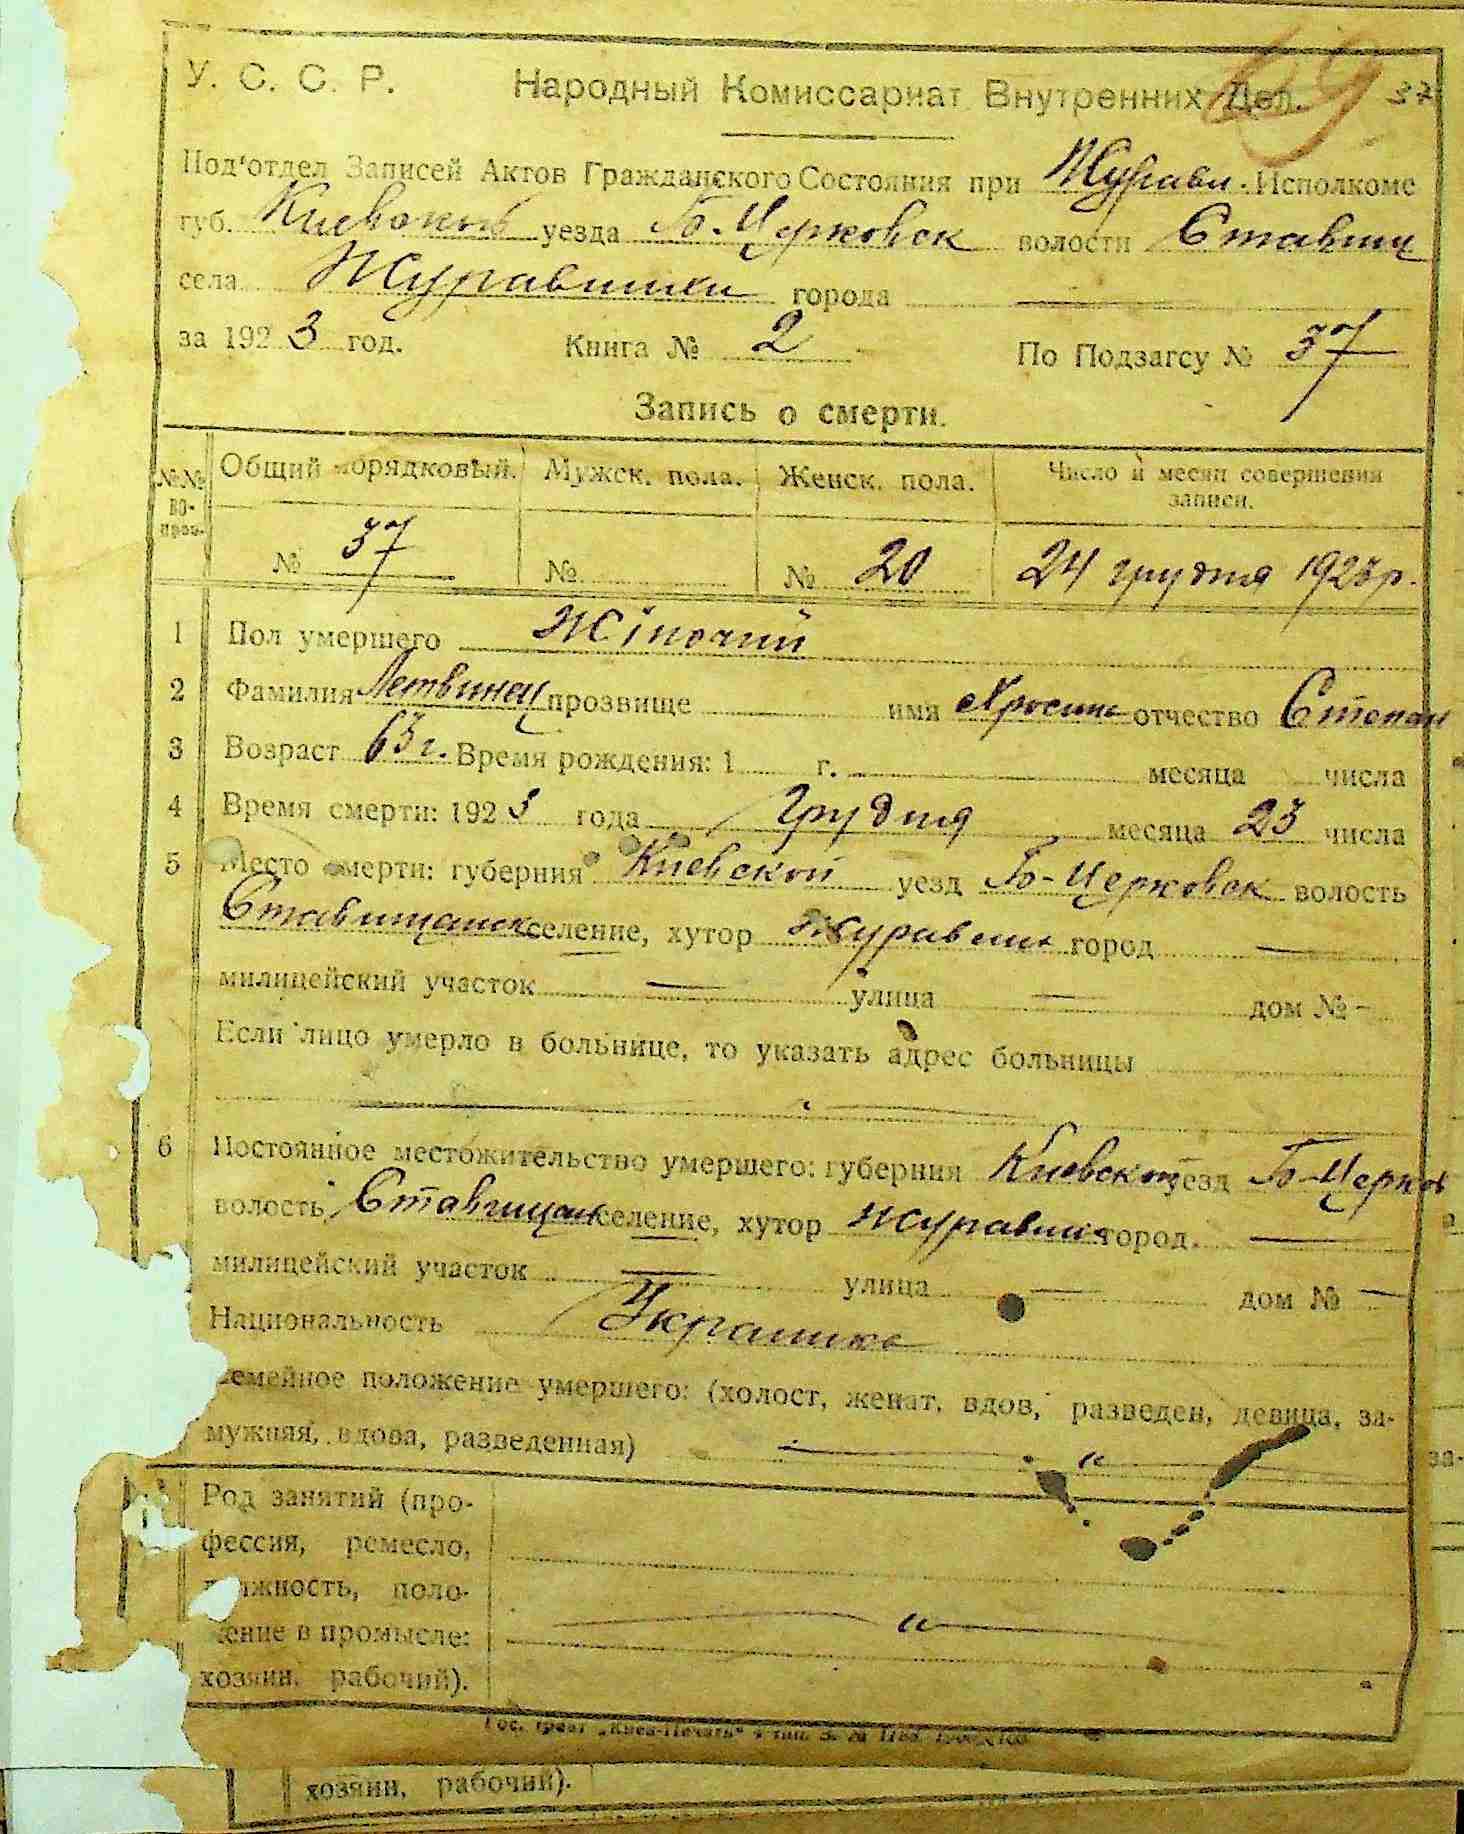 У. С. С. Р. Народный Комиссариат Внутренних Дел. 69 37
Под'отдел Записей Актов Гражданского Состояния при Журавл. Исполкоме
губ. Киевской уезда Б.-Церковск волости Ставищ
села Журавлихи города —
за 1923 год. Книга № 2 По Подзагсу № 37
Запись о смерти.
№№ во-прос. Общий порядковый. Мужск. пола. Женск. пола. Число и месяц совершения записи.
№ 37 № № 20 24 грудня 1923 р.
1 Пол умершего Жіночий
2 Фамилия Летвинец прозвище имя Хросина отчество Степан
3 Возраст 63 г. Время рождения: 1 г. месяца числа
4 Время смерти: 1923 года Грудня месяца 23 числа
5 Место смерти: губерния Киевской уезд Б-Церковск волость
Ставищанск селение, хутор Журавлиха город —
милицейский участок — улица — дом № –
Если лицо умерло в больнице, то указать адрес больницы
6 Постоянное местожительство умершего: губерния Киевской уезд Б-Церков
волость Ставищан селение, хутор Журавлиха город. —
милицейский участок — улица — дом № —
Национальность Украинка
семейное положение умершего: (холост, женат, вдов, разведен, девица, за-
мужняя, вдова, разведенная) — „ —
Род занятий (про-
фессия, ремесло,
должность, поло-
жение в промысле: — „ —
хозяин, рабочий).
Гос. трест „Киев-Печать“ 4 тип. З. №
хозяин, рабочий).